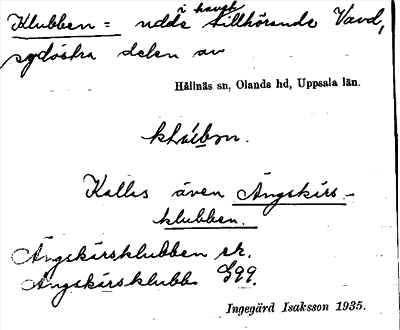 Klubben = udde i havet tillhörande Vavd,
sydöstra delen av
Hållnäs sn, Olands hd, Uppsala län.
Kallas även Ängskärs-
klubben.
Ängskärsklubben ek.
Ängskärsklubb G99.
Ingegärd Isaksson 1935.